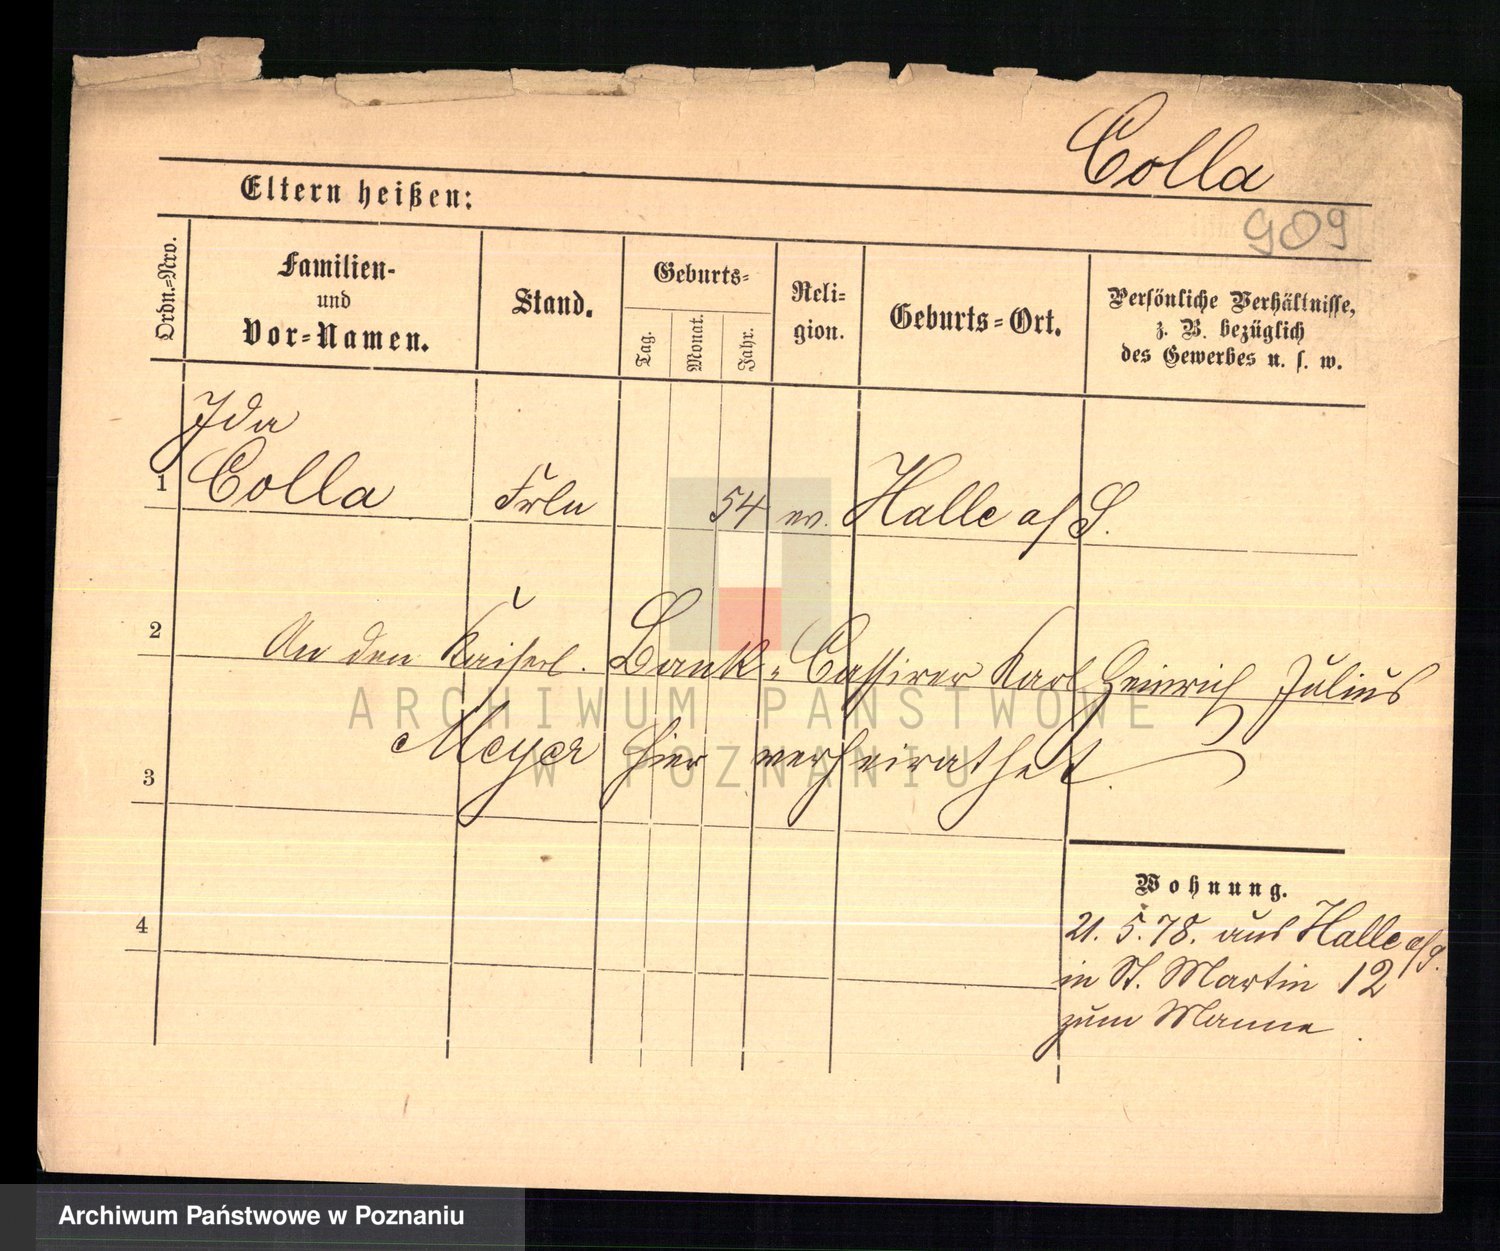 Colla
909
Eltern heißen:
Ordn.-Nro.
Familien-
und
Vor-Namen.
Stand.
Geburts-
Tag.
Monat.
Jahr.
Reli-
gion.
Geburts-Ort.
Persönliche Verhältnisse,
z. B. bezüglich
des Gewerbes u. s. w.
Ida
1 Colla Frln 54 ev. Halle a/S.
2
An den Kaiserl. Bank-Cassirer Karl Heinrich Julius
Meyer hier verheirathet.
3
4
Wohnung.
21. 5. 78. aus Halle a/S.
in St. Martin 12
zum Manne
ARCHIWUM PAŃSTWOWE
W POZNANIU
Archiwum Państwowe w Poznaniu